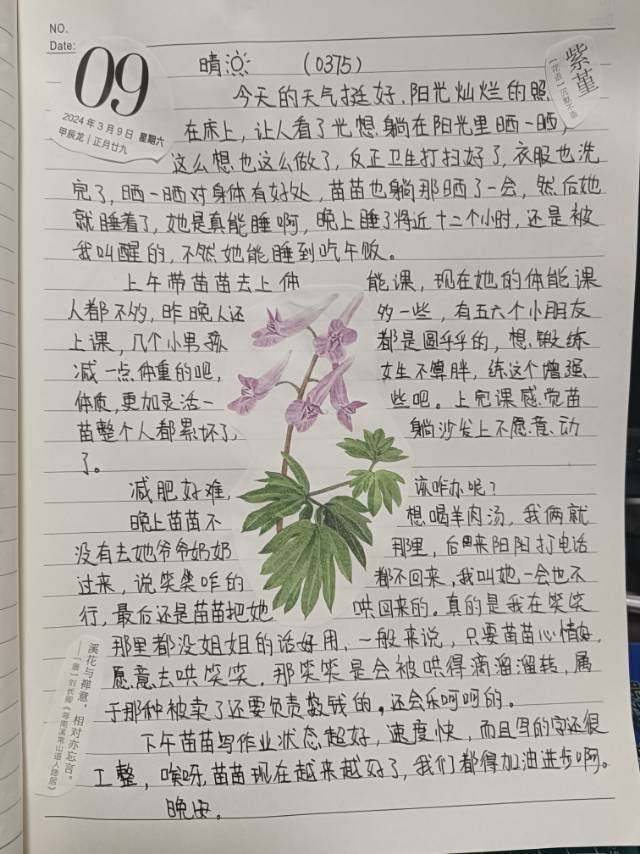 NO.
Date:
09
2024年3月9日 星期六
甲辰龙｜正月廿九
晴 (0375)
紫堇
【花语】沉默不语
今天的天气挺好，阳光灿烂的照
在床上，让人看了尤想躺在阳光里晒一晒，
这么想也这么做了，反正卫生打扫好了，衣服也洗
完了，晒一晒对身体有好处，苗苗也躺那晒了一会，然后她
就睡着了，她是真能睡啊，晚上睡了将近十二个小时，还是被
我叫醒的，不然她能睡到吃午饭。
上午带苗苗去上体能课，现在她的体能课
人都不多，昨晚人还多一些，有五六个小朋友
上课，几个小男孩都是圆乎乎的，想锻练
减一点体重的吧，女生不算胖，练这个增强
体质，更加灵活一些吧。上完课感觉苗
苗整个人都累坏了，躺沙发上不愿意动
了。
减肥好难，该咋办呢？
晚上苗苗不想喝羊肉汤，我俩就
没有去她爷爷奶奶那里，后来阳阳打电话
过来，说笑笑咋的都不回来，我叫她一会也不
行，最后还是苗苗把她哄回来的。真的是我在笑笑
那里都没姐姐的话好用，一般来说，只要苗苗心情好，
愿意去哄笑笑，那笑笑是会被哄得滴溜溜转，属
于那种被卖了还要负责数钱的。还会乐呵呵的。
下午苗苗写作业状态超好，速度快，而且写的字还很
工整，唉呀，苗苗现在越来越好了，我们都得加油进步啊。
晚安。
溪花与禅意，相对亦忘言。
——［唐］刘长卿《寻南溪常山道人隐居》